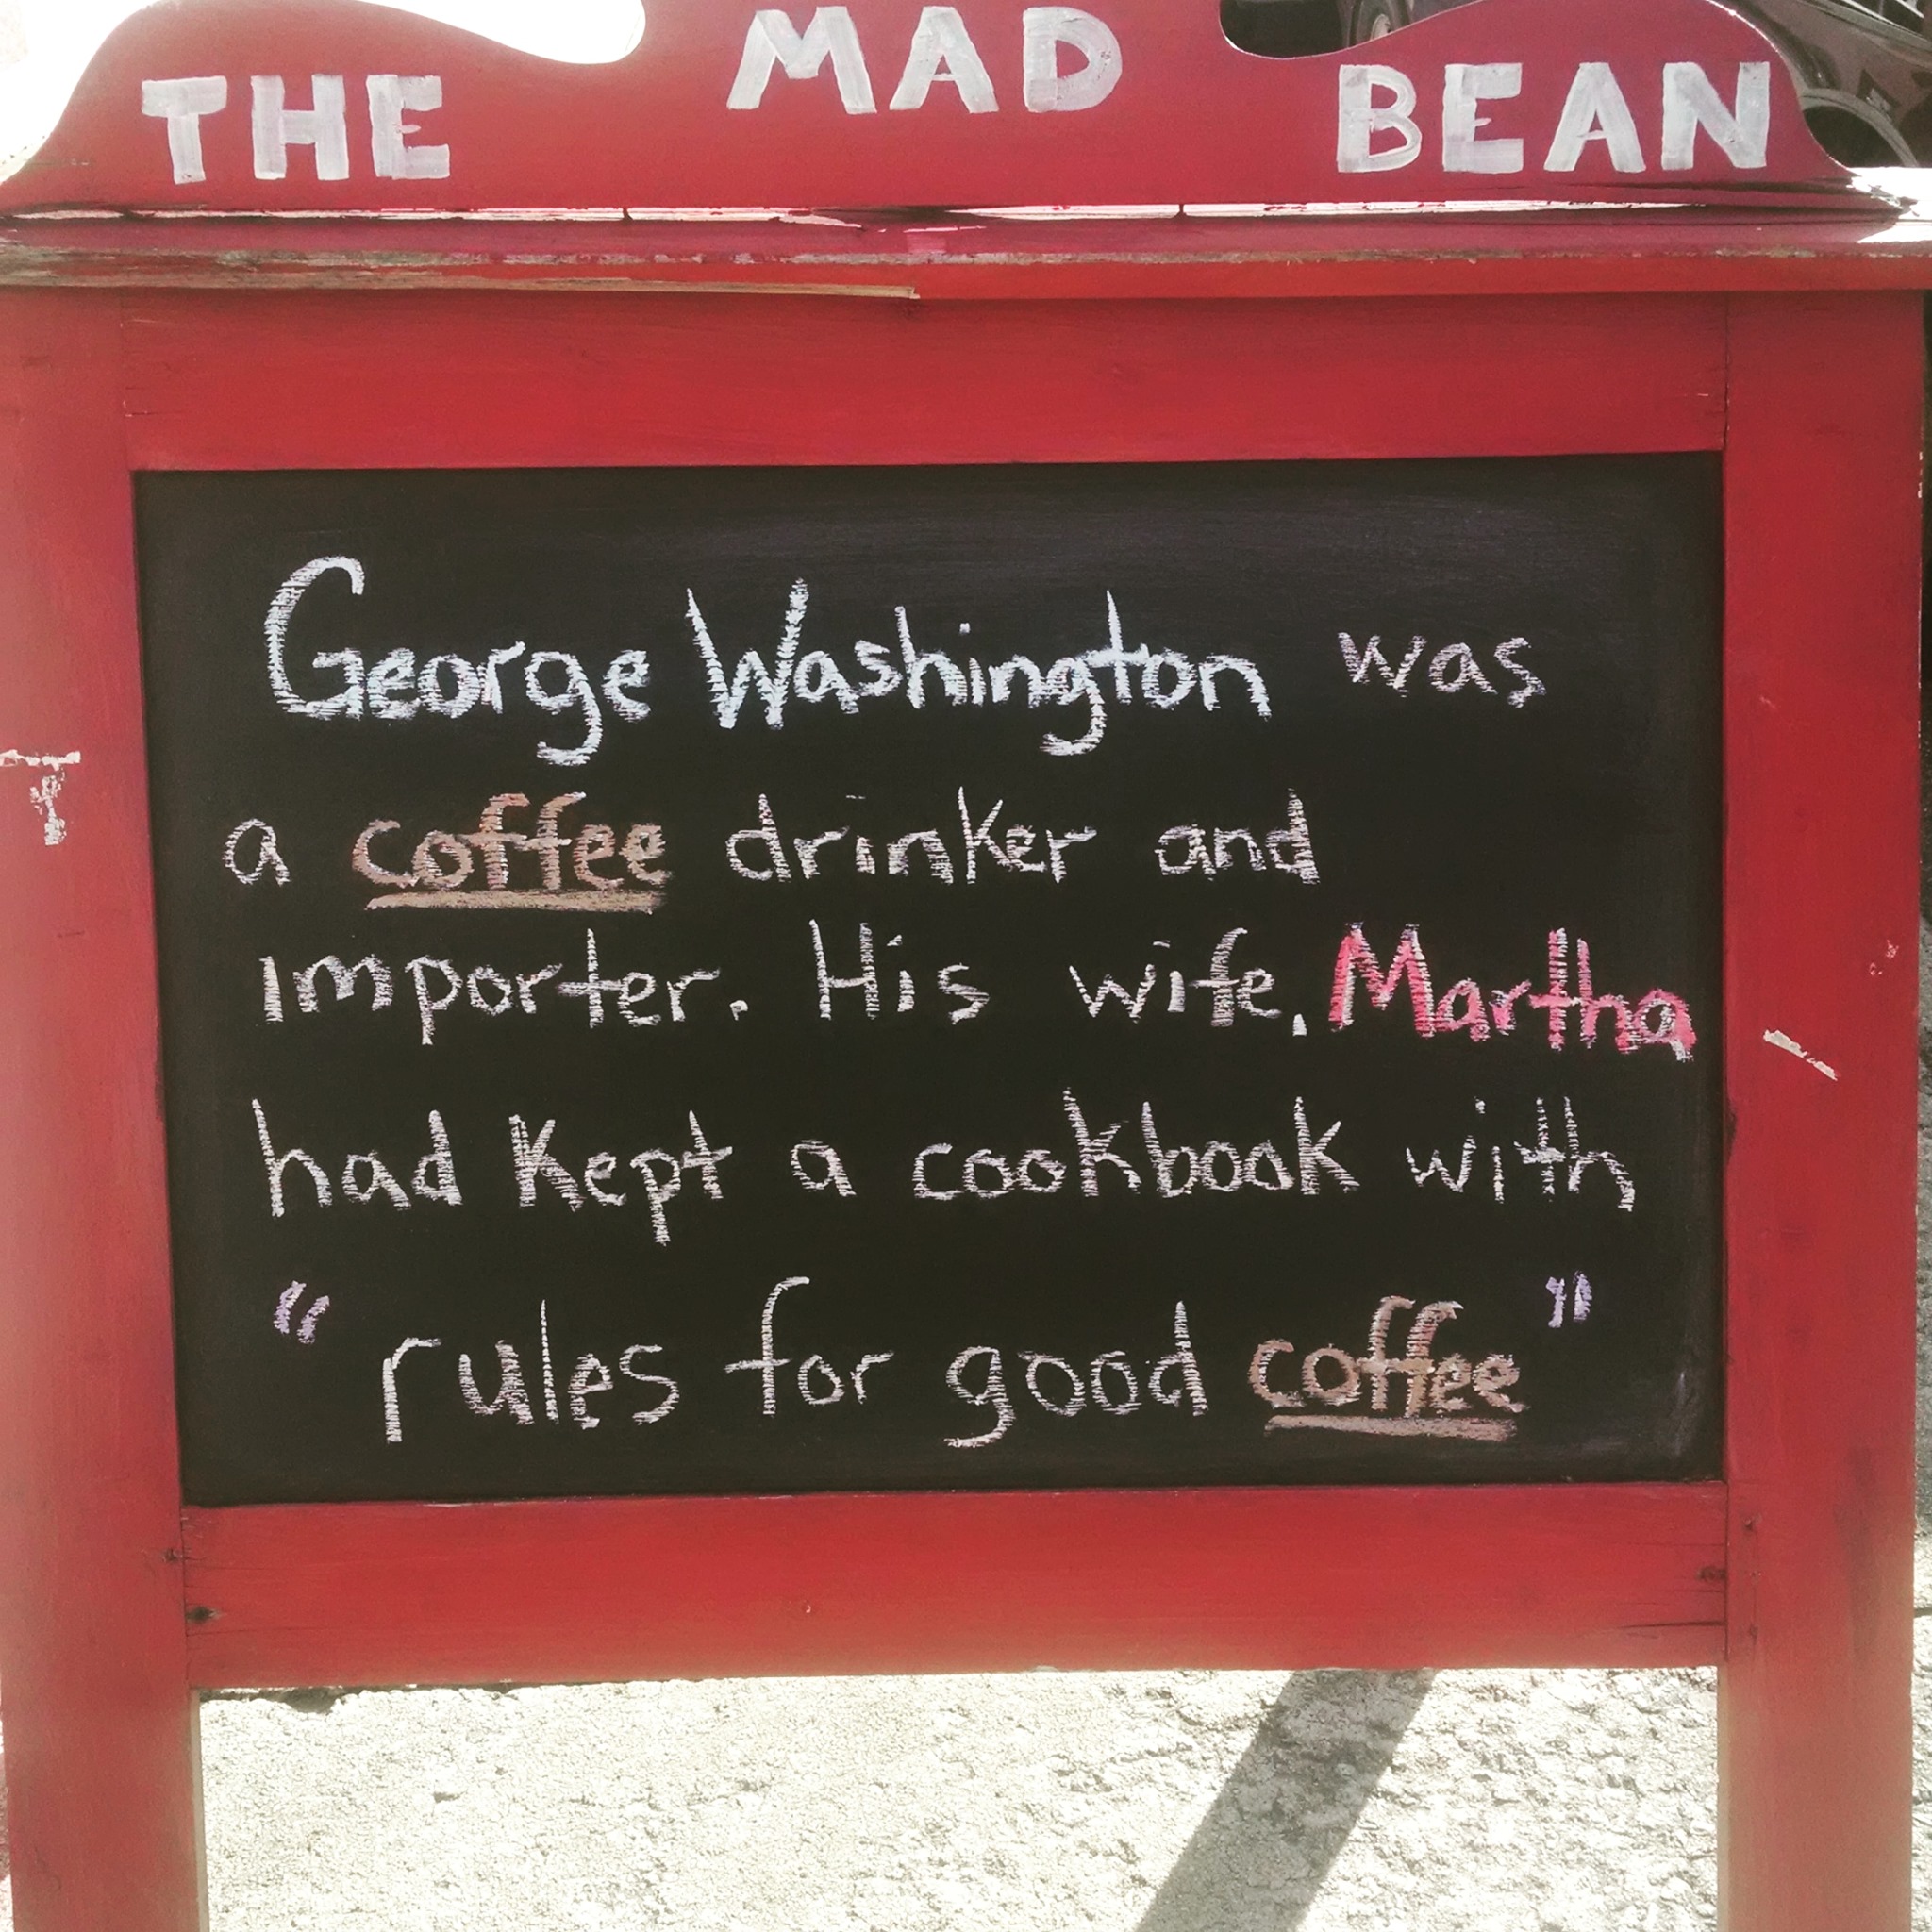 THE MAD BEAN
George Washington was
a coffee drinker and
importer. His wife, Martha
had kept a cookbook with
"rules for good coffee"